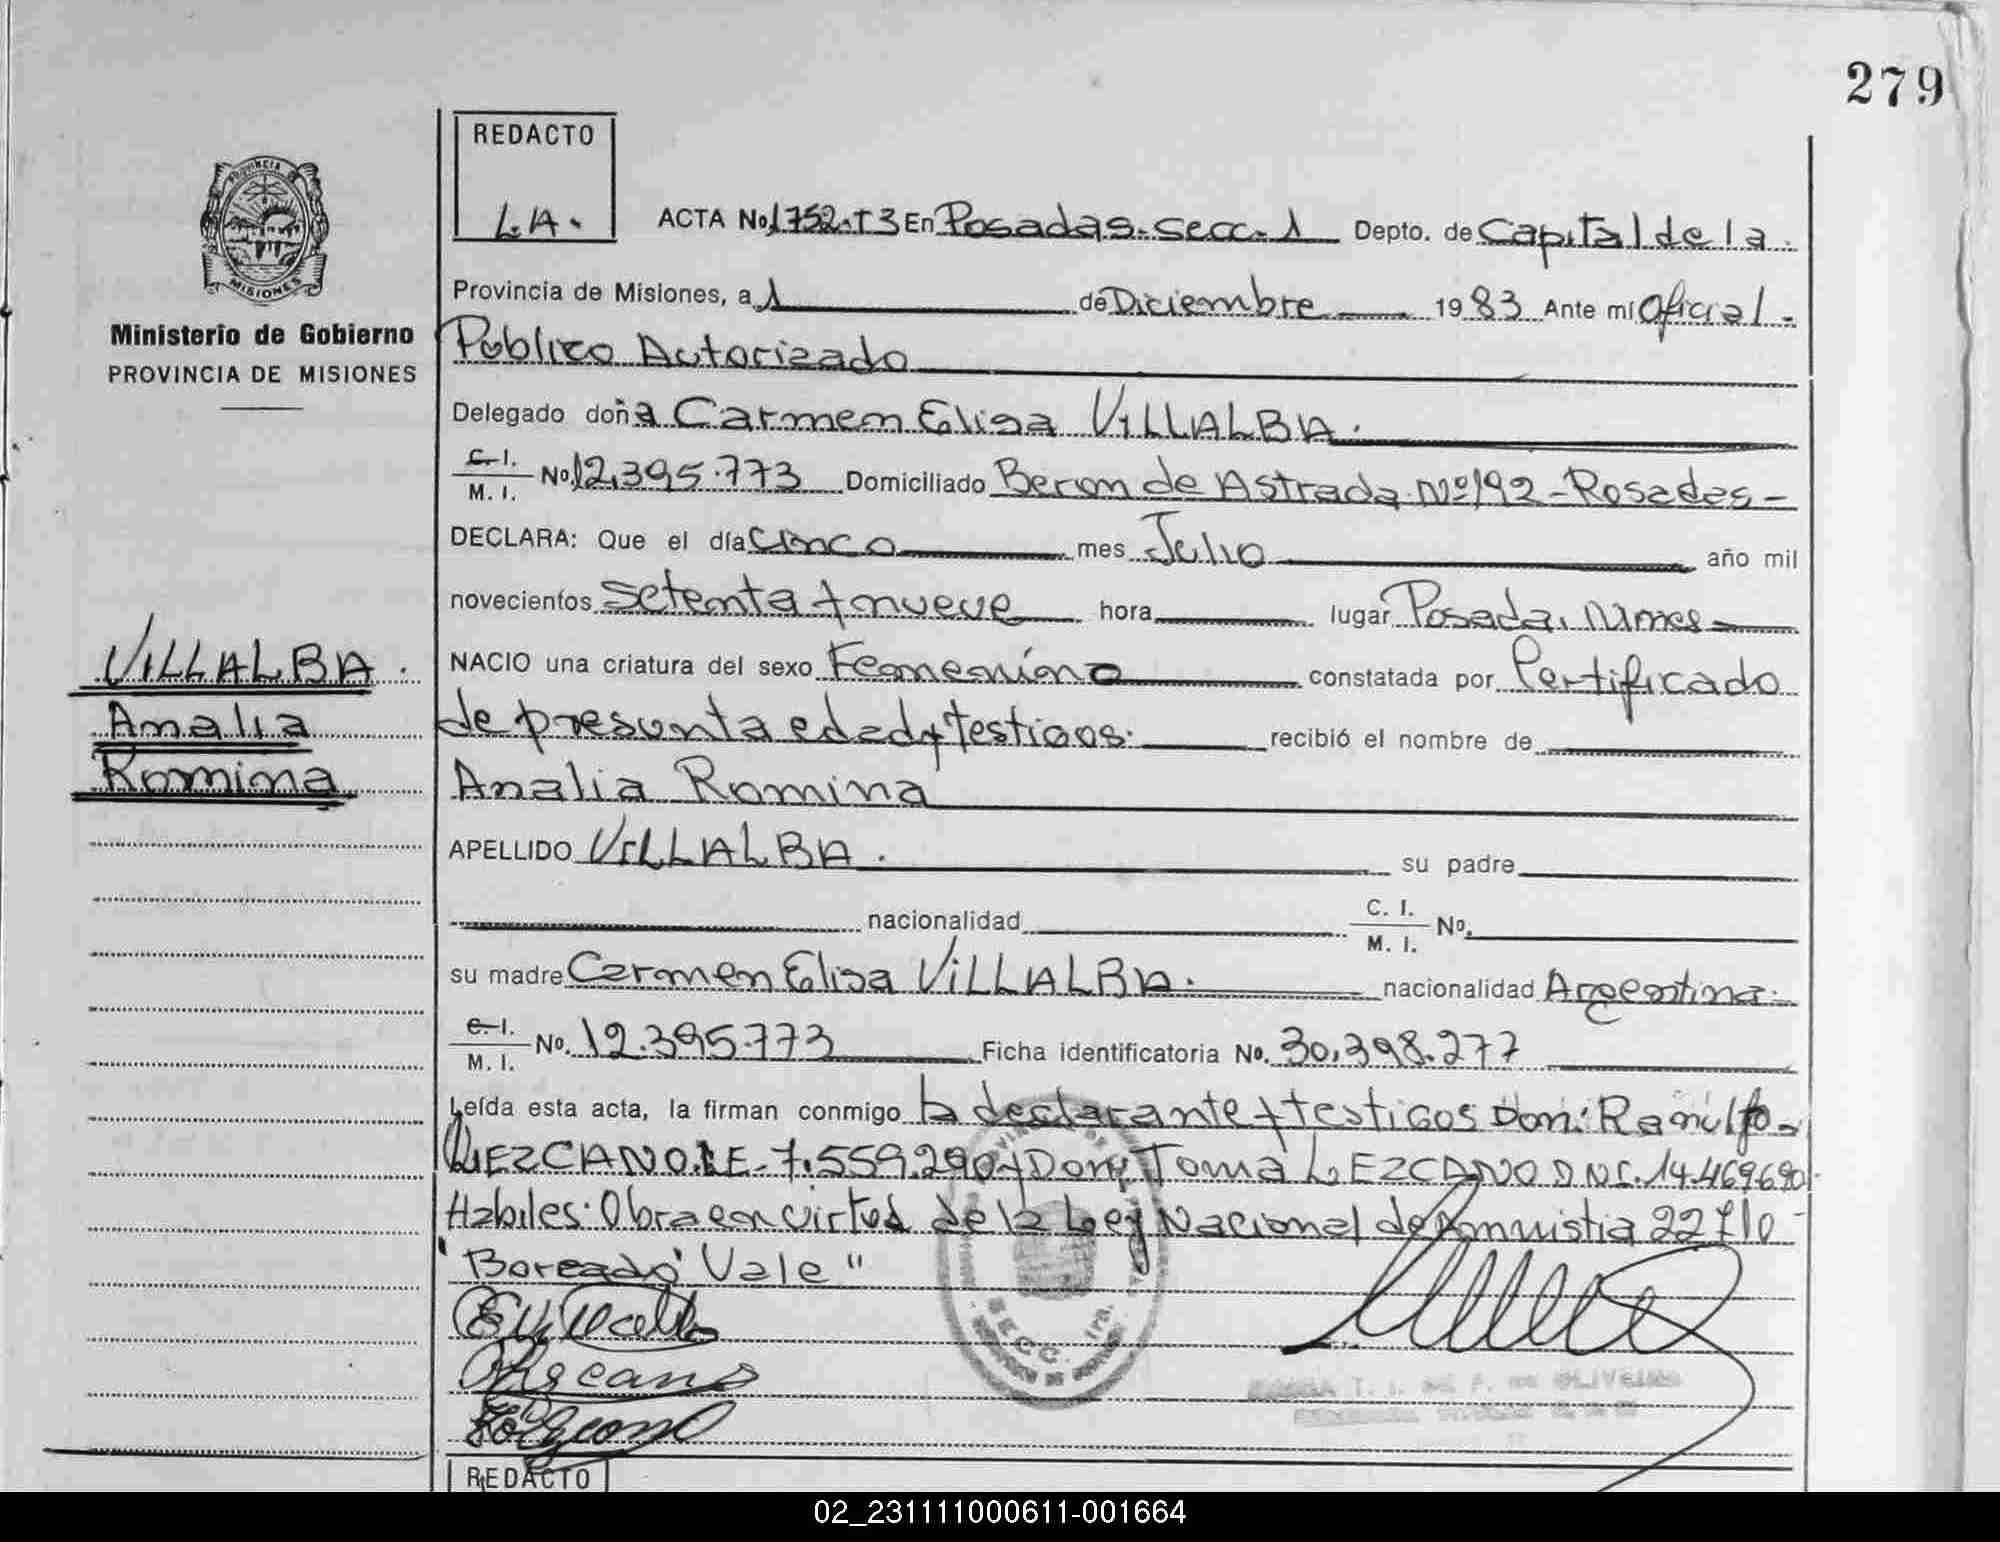 279
REDACTO
L.A.
ACTA No 1752-T3 En Posadas-Secc-1 Depto. de Capital de la
Provincia de Misiones, a 1 de Diciembre 1983 Ante mí Oficial
Publico Autorizado
Delegado doña Carmen Elisa VILLALBA.
C. I. / M. I. No 12,395.773 Domiciliado Beron de Astrada Nº 192 - Posadas -
DECLARA: Que el día Cinco mes Julio año mil
novecientos Setenta y nueve hora lugar Posada, Mnes
NACIO una criatura del sexo Femenino constatada por Certificado
de presunta edad y testigos. recibió el nombre de
Analia Romina
APELLIDO VILLALBA. su padre
nacionalidad C. I. / M. I. No.
su madre Carmen Elisa VILLALBA. nacionalidad Argentina.
C. I. / M. I. No. 12.395.773 Ficha identificatoria No. 30,398.277
Leída esta acta, la firman conmigo la declarante y testigos Don: Ramulfo
LEZCANO. LE-7.559.290 y Don: Toma LEZCANO DNI. 14.469690
Habiles. Obra en virtud de la Ley Nacional de Amnistia 22710
"Boreado" Vale"
REDACTO
PROVINCIA
MISIONES
Ministerio de Gobierno
PROVINCIA DE MISIONES
VILLALBA.
Analia
Romina
SECC. 1RA.
DE OLIVEIRA
02_231111000611-001664